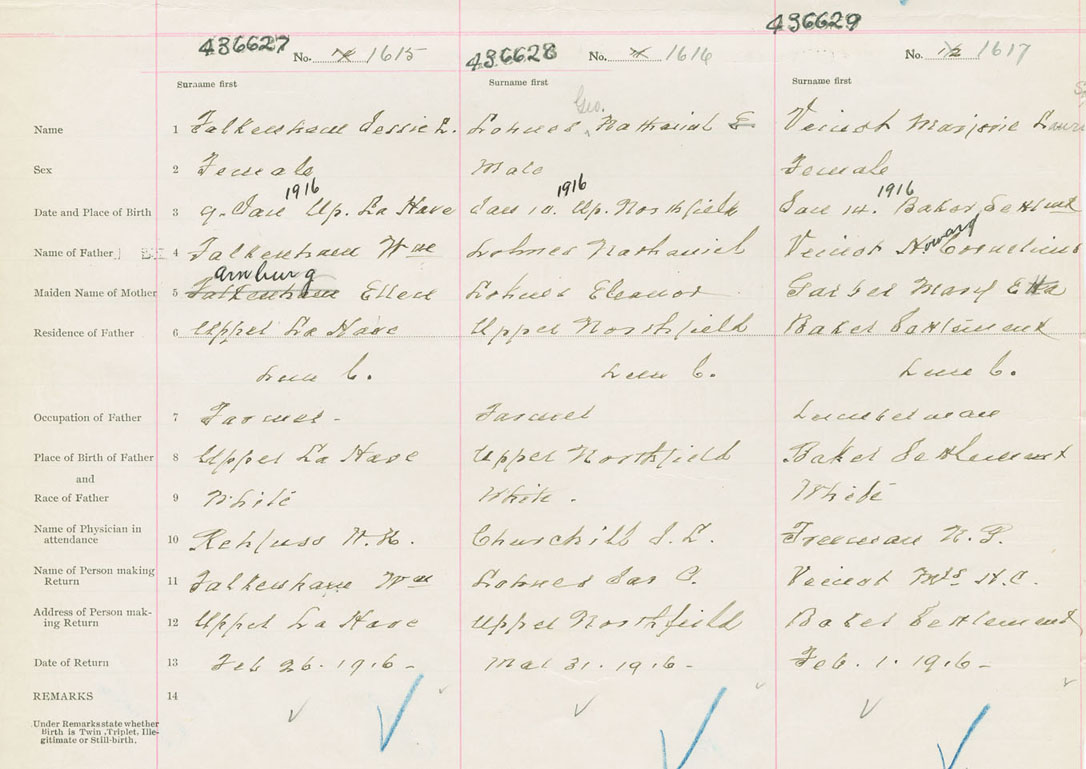 436627 No. 1615 436628 No. 1616 436629 No. 1/2 1617
Surname first Surname first Surname first
Geo.
Name 1 Falkenham Jessie L. Lohnes Nathanial E. Veinot Marjorie Laura
Sex 2 Female Male Female
1916 1916 1916
Date and Place of Birth 3 9. Jan Up. La Have Jan 10. Up. Northfield Jan 14. Baker Settlmt
Howard
Name of Father 4 Falkenham Wm Lohnes Nathaniel Veinot H. Cornelius
amburg
Maiden Name of Mother 5 Falkenham Ellen Lohnes Eleanor Garber Mary Etta
Residence of Father 6 Upper La Have Upper Northfield Baker Settlement
Lun C. Lun C. Lun C.
Occupation of Father 7 Farmer - Farmer Lumberman
Place of Birth of Father 8 Upper La Have Upper Northfield Baker Settlement
and
Race of Father 9 White White. White
Name of Physician in
attendance 10 Rehfuss W.H. Churchill J.L. Freeman N.P.
Name of Person making
Return 11 Falkenham Wm Lohnes Jas C. Veinot Mrs H.C.
Address of Person mak-
ing Return 12 Upper La Have Upper Northfield Baker Settlement
Date of Return 13 Feb 26. 1916 - Mar 31. 1916 - Feb. 1. 1916 -
REMARKS 14
Under Remarks state whether
Birth is Twin, Triplet, Ille-
gitimate or Still-birth.